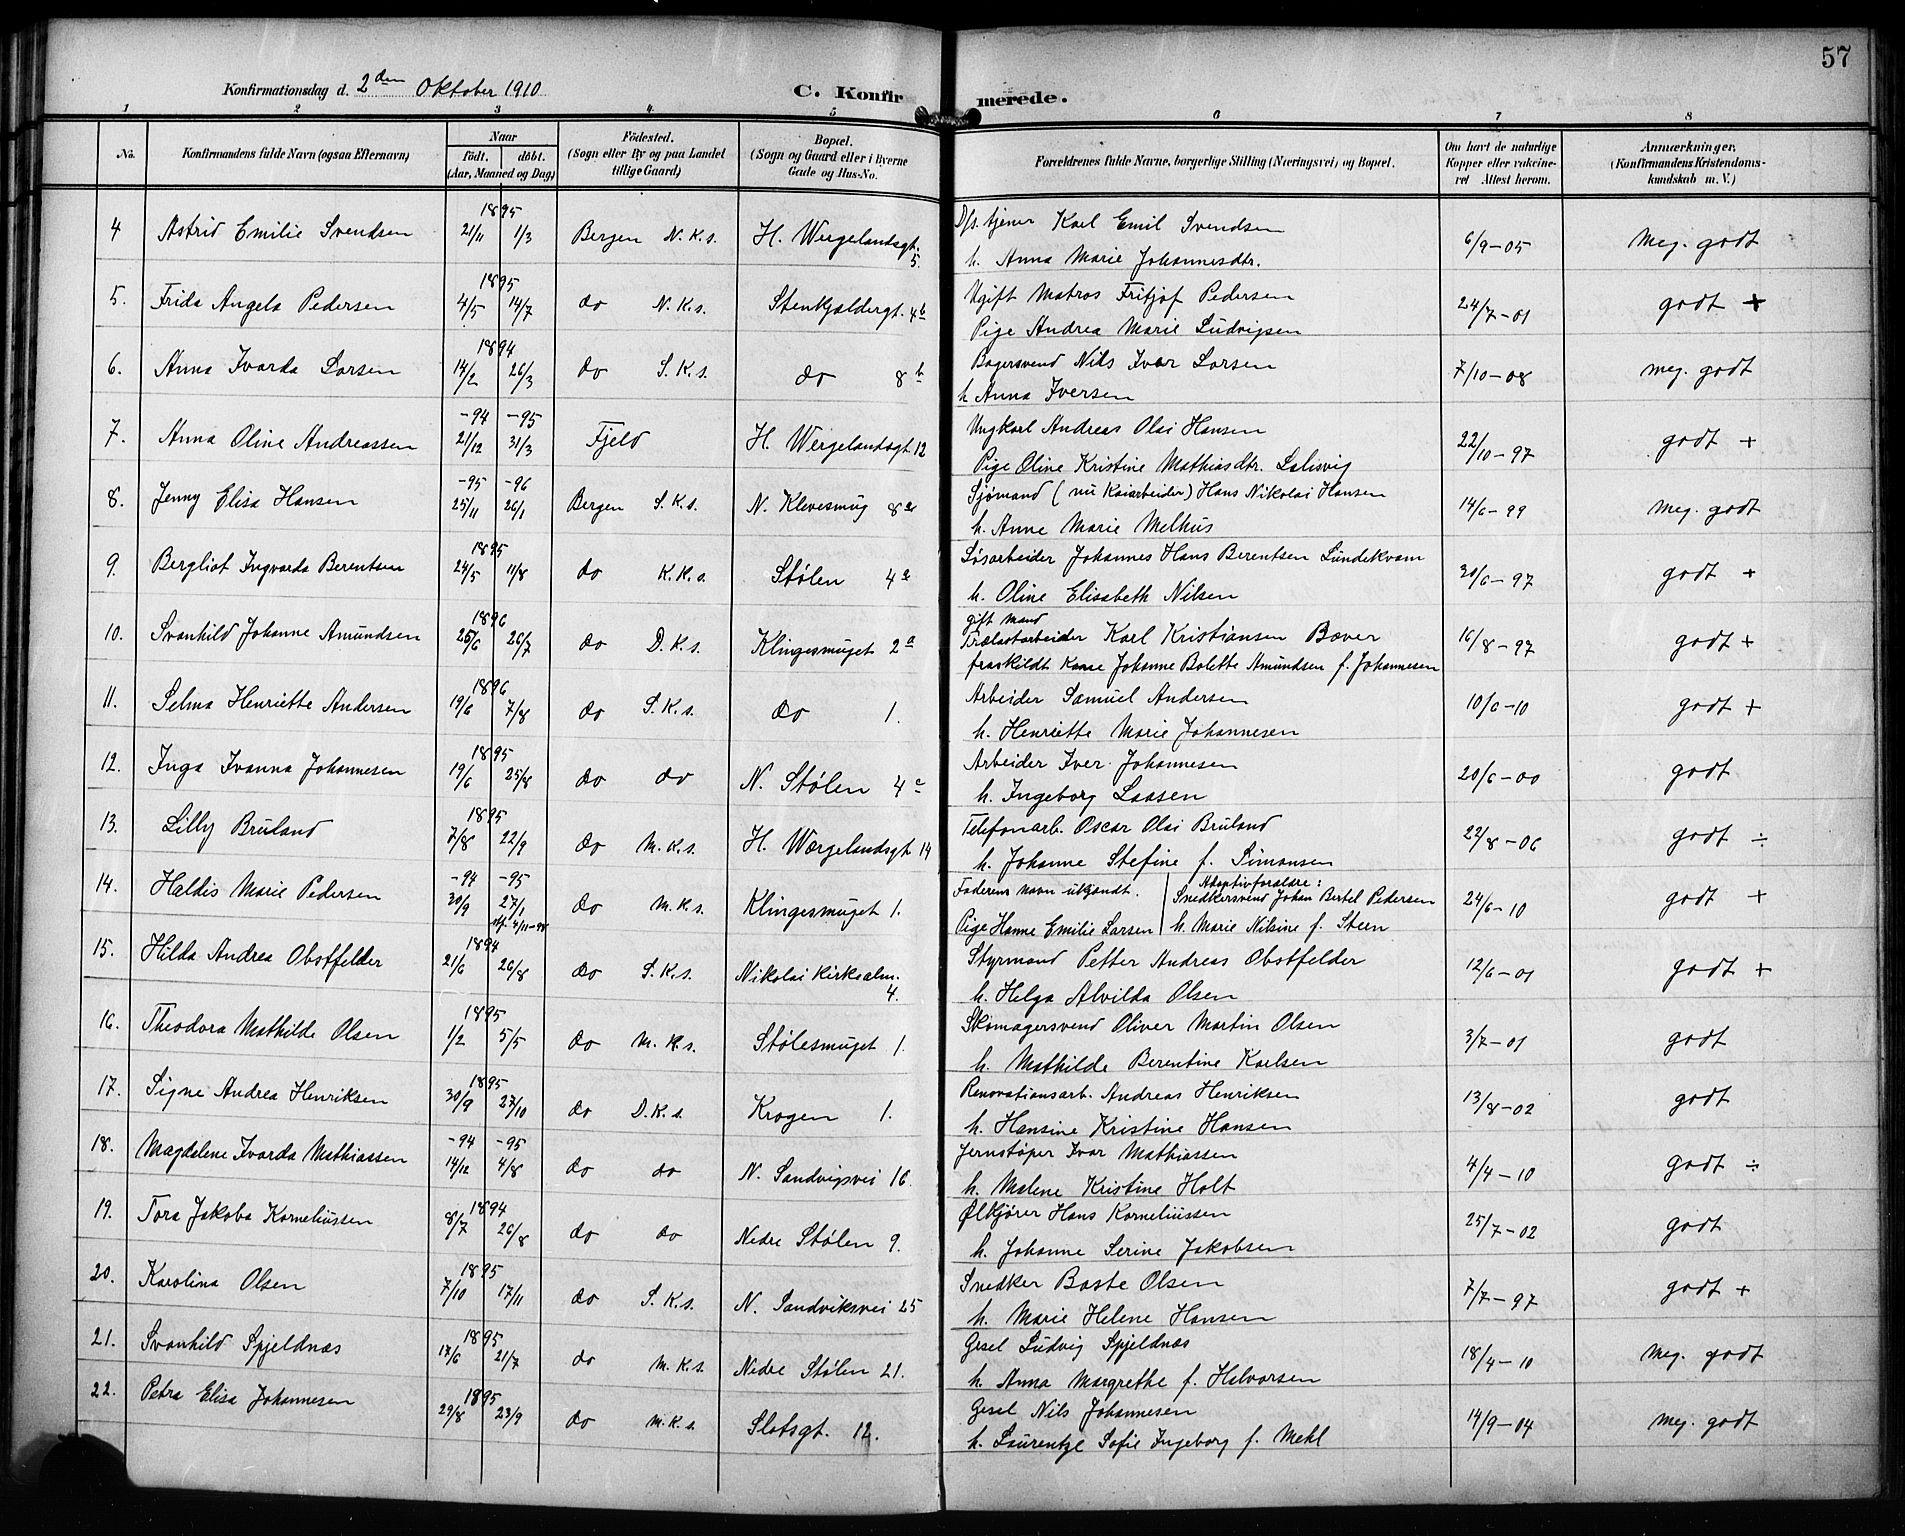 57
Konfirmationsdag d. 2den Oktober 1910
C. Konfirmerede.
1 2 3 4 5 6 7 8
No.
Konfirmandens fulde Navn (ogsaa Efternavn)
Naar
født. døbt.
(Aar, Maaned og Dag)
Fødested.
(Sogn eller By og paa Landet
tillige Gaard)
Bopæl.
(Sogn og Gaard eller i Byerne
Gade og Hus-No.
Forældrenes fulde Navne, borgerlige Stilling (Næringsvei) og Bopæl.
Om havt de naturlige
Kopper eller vakcine-
ret Attest herom.
Anmærkninger,
(Konfirmandens Kristendoms-
kundskab m. V.)
4 Astrid Emilie Svendsen 1895 21/11 1/3 Bergen N.K.s. H. Wergelandsgt. 5. Dfs. tjener Karl Emil Svendsen 6/9-05 Meg. godt
h. Anna Marie Johannesdtr.
5. Frida Angela Pedersen 1895 4/5 14/7 do N.K.s. Stenkjeldergt. 4b Ugift Matros Fritjof Pedersen 24/7-01 godt +
Pige Andrea Marie Ludvigsen
6. Anna Ivarda Larsen 1894 14/2 26/3 do S.K.s. do 8b Bagersvend Nils Ivar Larsen 7/10-08 meg. godt
h Anna Iversen
7. Anna Oline Andreassen -94 -95 21/12 31/3 Fjeld H. Wergelandsgt 12 Ungkarl Andreas Olai Hansen 22/10-97 godt +
Pige Oline Kristine Mathiasdtr.
8. Jenny Elisa Hansen -95 -96 25/11 26/1 Bergen S.K.s. N. Klevesmug 8a Sjømand (nu Kaiarbeider) Hans Nikolai Hansen 14/6-99 Meg. godt
h. Anne Marie Melhus
9. Bergliot Ingvarda Berentsen 1895 24/5 11/8 do K.K.s. Stølen 4a Løsarbeider Johannes Hans Berentsen Lundekvam 30/6-97 godt +
h. Oline Elisabeth Nilsen
10. Svanhild Johanne Amundsen 1896 25/6 26/7 do D.K.s. Klingesmuget 2a gift mand
Trælastarbeider Karl Kristiansen Baver 16/8-97 godt +
fraskildt Kone Johanne Bolette Amundsen f. Johannesen
11. Selma Henriette Andersen 1896 19/6 7/8 do S.K.s. do 1. Arbeider Samuel Andersen 10/6-10 godt +
h. Henriette Marie Johannesen
12. Inga Ivanna Johannesen 1895 19/6 25/8 do do N. Stølen 4c Arbeider Iver Johannesen 20/6-00 godt
h. Ingeborg Laasen
13. Lilly Bruland 1895 7/8 22/9 do M.K.s. H. Wergelandsgt 14 Telefonarb. Oscar Olai Bruland 22/8-06 godt ÷
h. Johanne Stefine f. Simonsen
14. Haldis Marie Pedersen -94 -95 30/9 27/1 do M.K.s. Klingesmuget 1. Faderens navn ukjendt. Adoptivforældre: Snedkersvend Johan Bertel Pedersen 24/6-10 godt +
Pige Hanne Emilie Larsen h. Marie Nilsine f. Steen
15. Hilda Andrea Obstfelder 1894 21/6 26/8 do S.K.s. Nikolai Kirkealm. 4. Styrmand Petter Andreas Obstfelder 12/6-01 godt +
h. Helga Alvilda Olsen
16. Theodora Mathilde Olsen 1895 1/2 5/5 do M.K.s. Stølesmuget 1. Skomagersvend Oliver Martin Olsen 3/7-01 godt
h. Mathilde Berentine Karlsen
17. Signe Andrea Henriksen 1895 30/9 27/10 do D.K.s. Krogen 1. Renovationsarb. Andreas Henriksen 13/8-02 godt
h. Hansine Kristine Hansen
18. Magdelene Ivarda Mathiassen -94 -95 14/12 4/8 do do N. Sandvigsvei 16. Jernstøper Ivar Mathiassen 4/4-10 godt ÷
h. Malene Kristine Holt
19. Tora Jakoba Korneliussen 1894 8/7 26/8 do do Nedre Stølen 9. Ølkjører Hans Korneliussen 25/7-02 godt
h. Johanne Serine Jakobsen
20. Karolina Olsen 1895 7/10 17/11 do S.K.s. N. Sandviksvei 25 Snedker Baste Olsen 7/7-97 godt +
h. Marie Helene Hansen
21. Svanhild Spjeldnæs 1895 17/6 21/7 do M.K.s. Nedre Stølen 21. Gesel Ludvig Spjeldnæs 18/4-10 Meg. godt
h. Anna Margrethe f. Halvorsen
22. Petra Elisa Johannesen 1895 29/8 23/9 do M.K.s. Slotsgt. 12. Gesel Nils Johannesen 14/9-04 Meg. godt
h. Laurentze Sofie Ingeborg f. Mehl